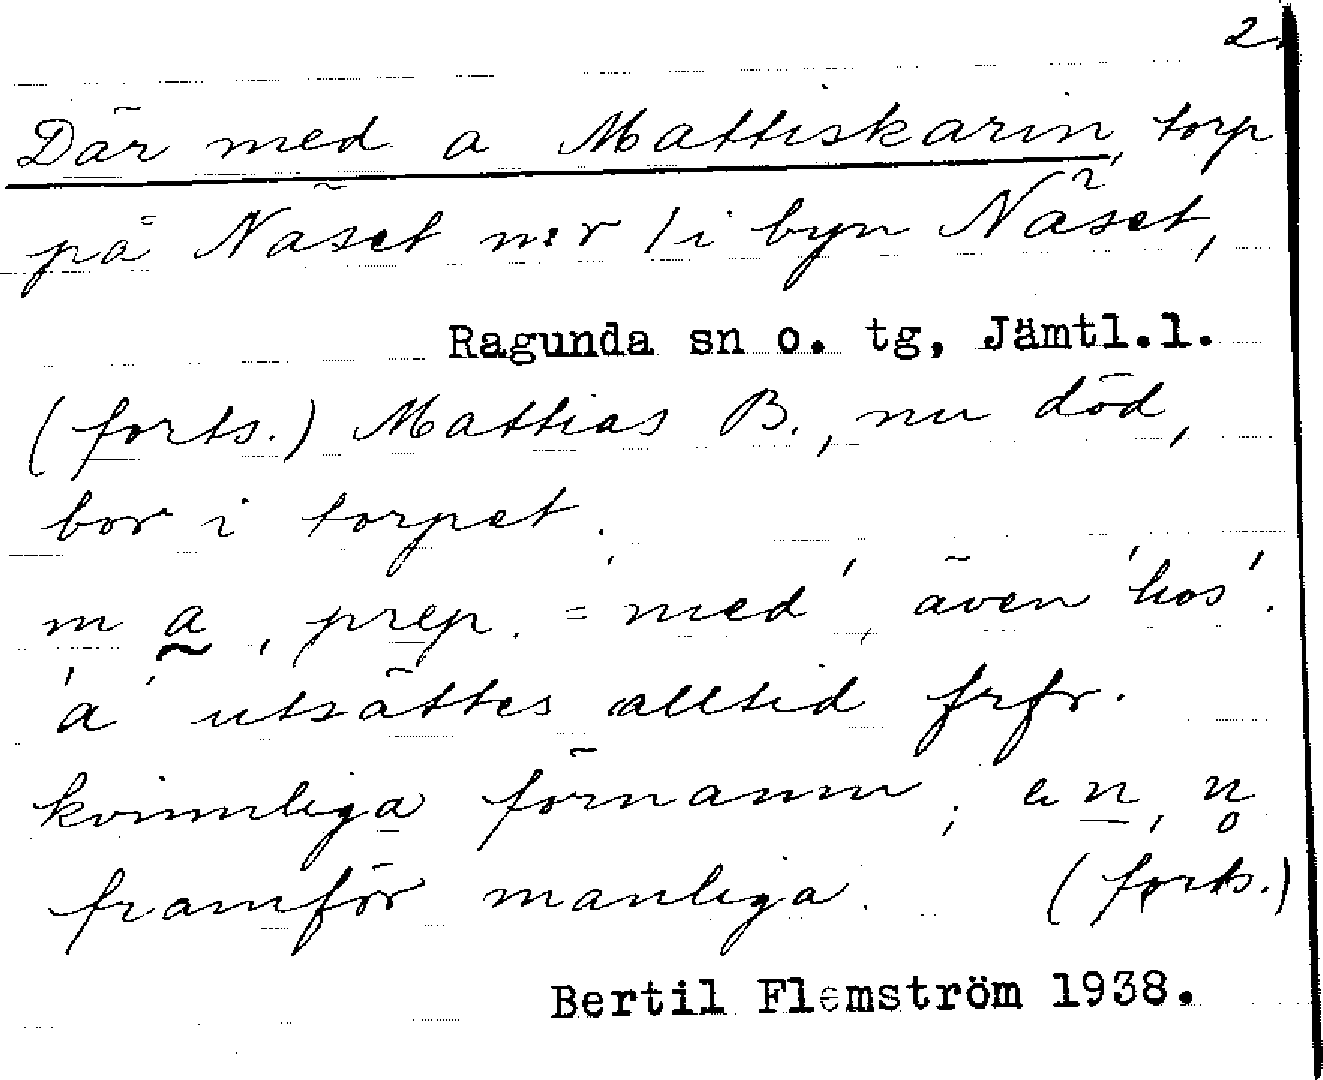 2.
Där med a Mattiskarin, torp
på Näset n:r 1 i byn Näset,
Ragunda sn o. tg, Jämtl.l.
(forts.) Mattias B., nu död,
bor i torpet.
m a, prep. = 'med', även 'hos'.
'a' utsättes alltid frfr.
kvinnliga förnamn; en, n̥
framför manliga. (forts.)
Bertil Flemström 1938.